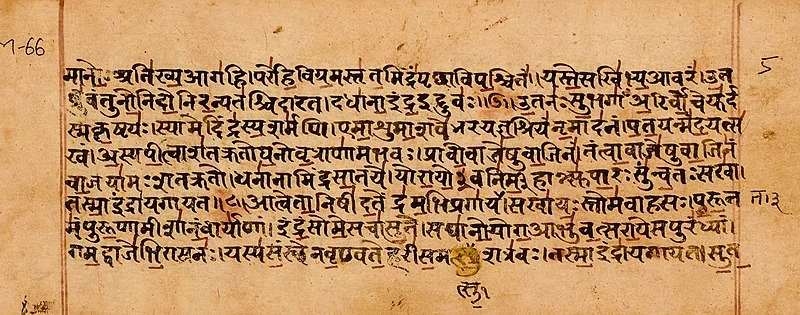 7-66
मानो अतिख्य आगहि। परेहि विग्रमस्तृतमिंद्रं पृच्छा विपश्चितं। यस्ते सखिभ्य आवरं। उत
ब्रुवंतु नो निदो निरन्यतश्चिदारत। दधाना इंद्र इद्दुवः॥७॥ उत नः सुभगाँ अरिर्वोचेयुर्द
स्म कृष्टयः। स्यामेदिंद्रस्य शर्मणि। एमाशुमाशवे भर यज्ञश्रियं नृमादनं। पतयन्मंदयत्स
खं। अस्य पीत्वा शतक्रतो घनो वृत्राणामभवः। प्रावो वाजेषु वाजिनं। तं त्वा वाजेषु वाजिनं
वाजयामः शतक्रतो। धनानामिंद्र सातये। यो रायो३वनिर्महान्त्सुपारः सुन्वतः सखा।
तस्मा इंद्राय गायत॥८॥ आत्वेता निषीदतेंद्रमभि प्रगायत। सखायः स्तोमवाहसः। पुरूत
मं पुरूणामीशानं वार्याणां। इंद्रं सोमे सचा सुते। स घा नो योग आभुवत्स राये स पुरंध्यां।
गमद्वाजेभिरा स नः। यस्य संस्थे न वृण्वते हरी समत्सु शत्रवः। तस्मा इंद्राय गायत। सुत
5
त।३
त्सु१